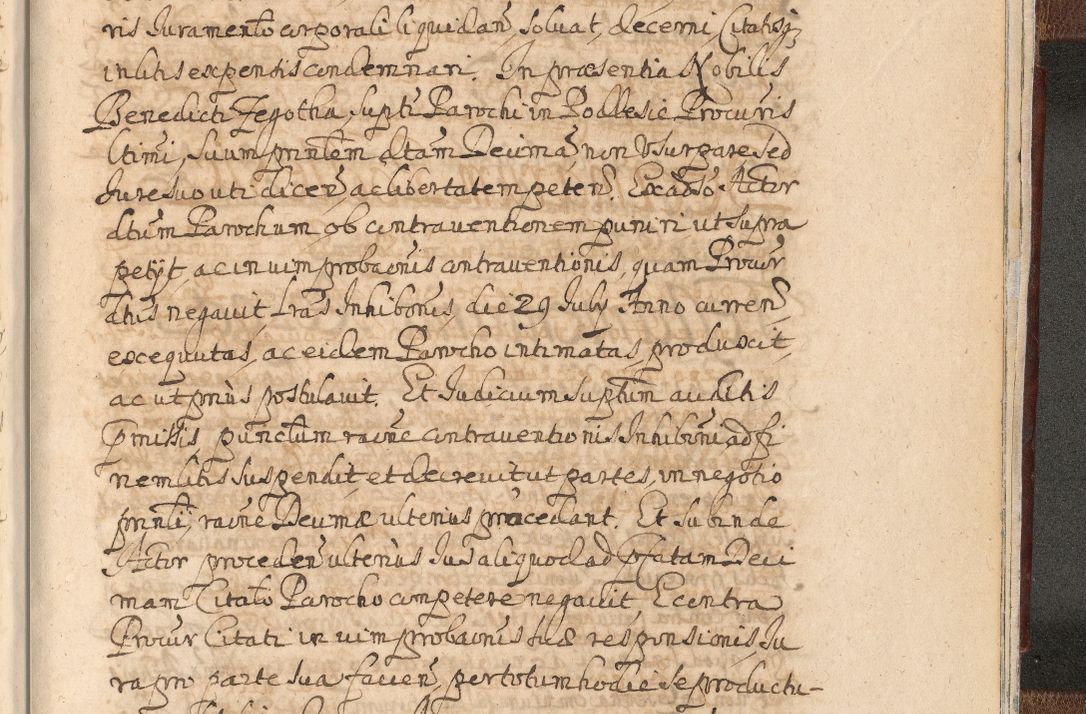 ris Juramento corporali liquidan, soluat, decerni, Citatosq;
in litis expensis condemnari. In præsentia Nobilis
Benedicti Zegotha, supti Parochi in Podlesie Procuris
ltimi, suum prinlem dtam Decimã non Vsurpare sed
Jure suo uti dicen, ac libertatem peten. Ex adso Actor
dtum Parochum ob contraventionem puniri ut supra
petijt, ac in uim probaonis contraventionis, quam Procur
dtus negauit, Lras Inhibonis, die 29 July Anno curren
execquutas, ac eidem Parocho intimatas, produxit,
ac ut prius postulauit. Et Judicium suptum auditis
pmissis punctum raone contraventionis Inhiboni, ad fi
nem litis suspendit, et decreuit ut partes, in negotio
prinli, raone Decimæ ulterius procedant. Et subinde
Actor proceden ulterius Jus aliquod ad pfatam Deci
mam Citato Parocho competere negauit, E contra
Procur Citati in uim probaonis suæ responsionis, Ju
ra pro parte sua facien, per totum hodie se productu-